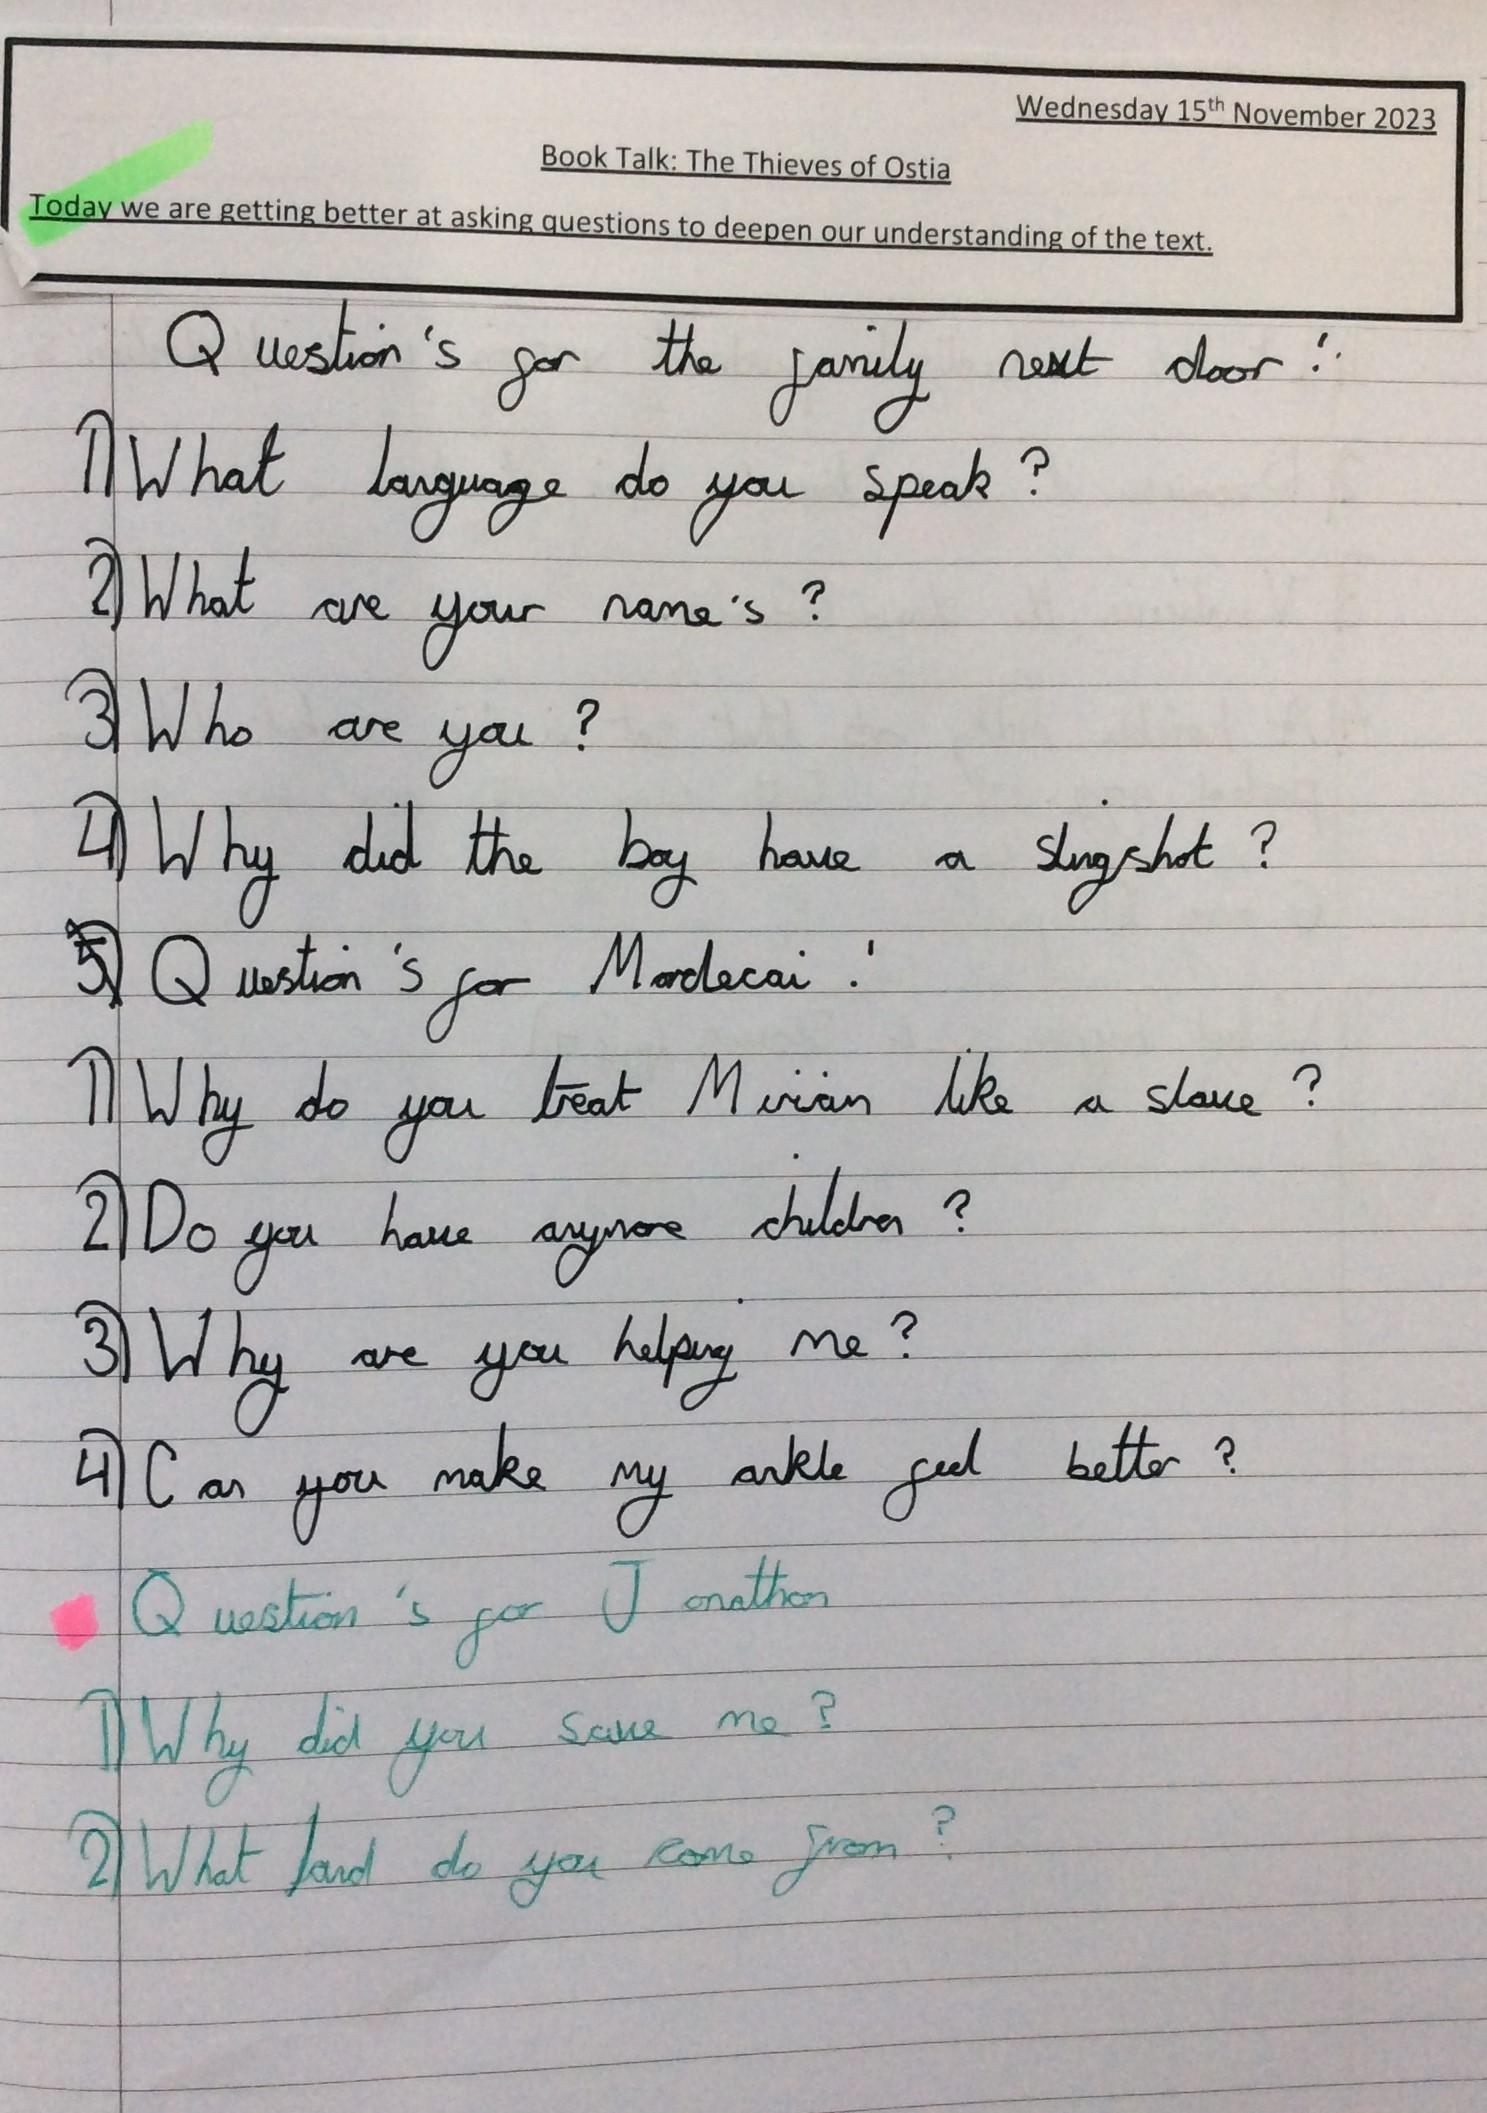 Wednesday 15th November 2023
Book Talk: The Thieves of Ostia
Today we are getting better at asking questions to deepen our understanding of the text.
Question's for the family next door:
1) What language do you speak?
2) What are your name's?
3) Who are you?
4) Why did the boy have a slingshot?
5) Question's for Mordecai:
1) Why do you treat Miriam like a slave?
2) Do you have anymore children?
3) Why are you helping me?
4) Can you make my ankle feel better?
Question's for Jonathon
1) Why did you save me?
2) What land do you come from?